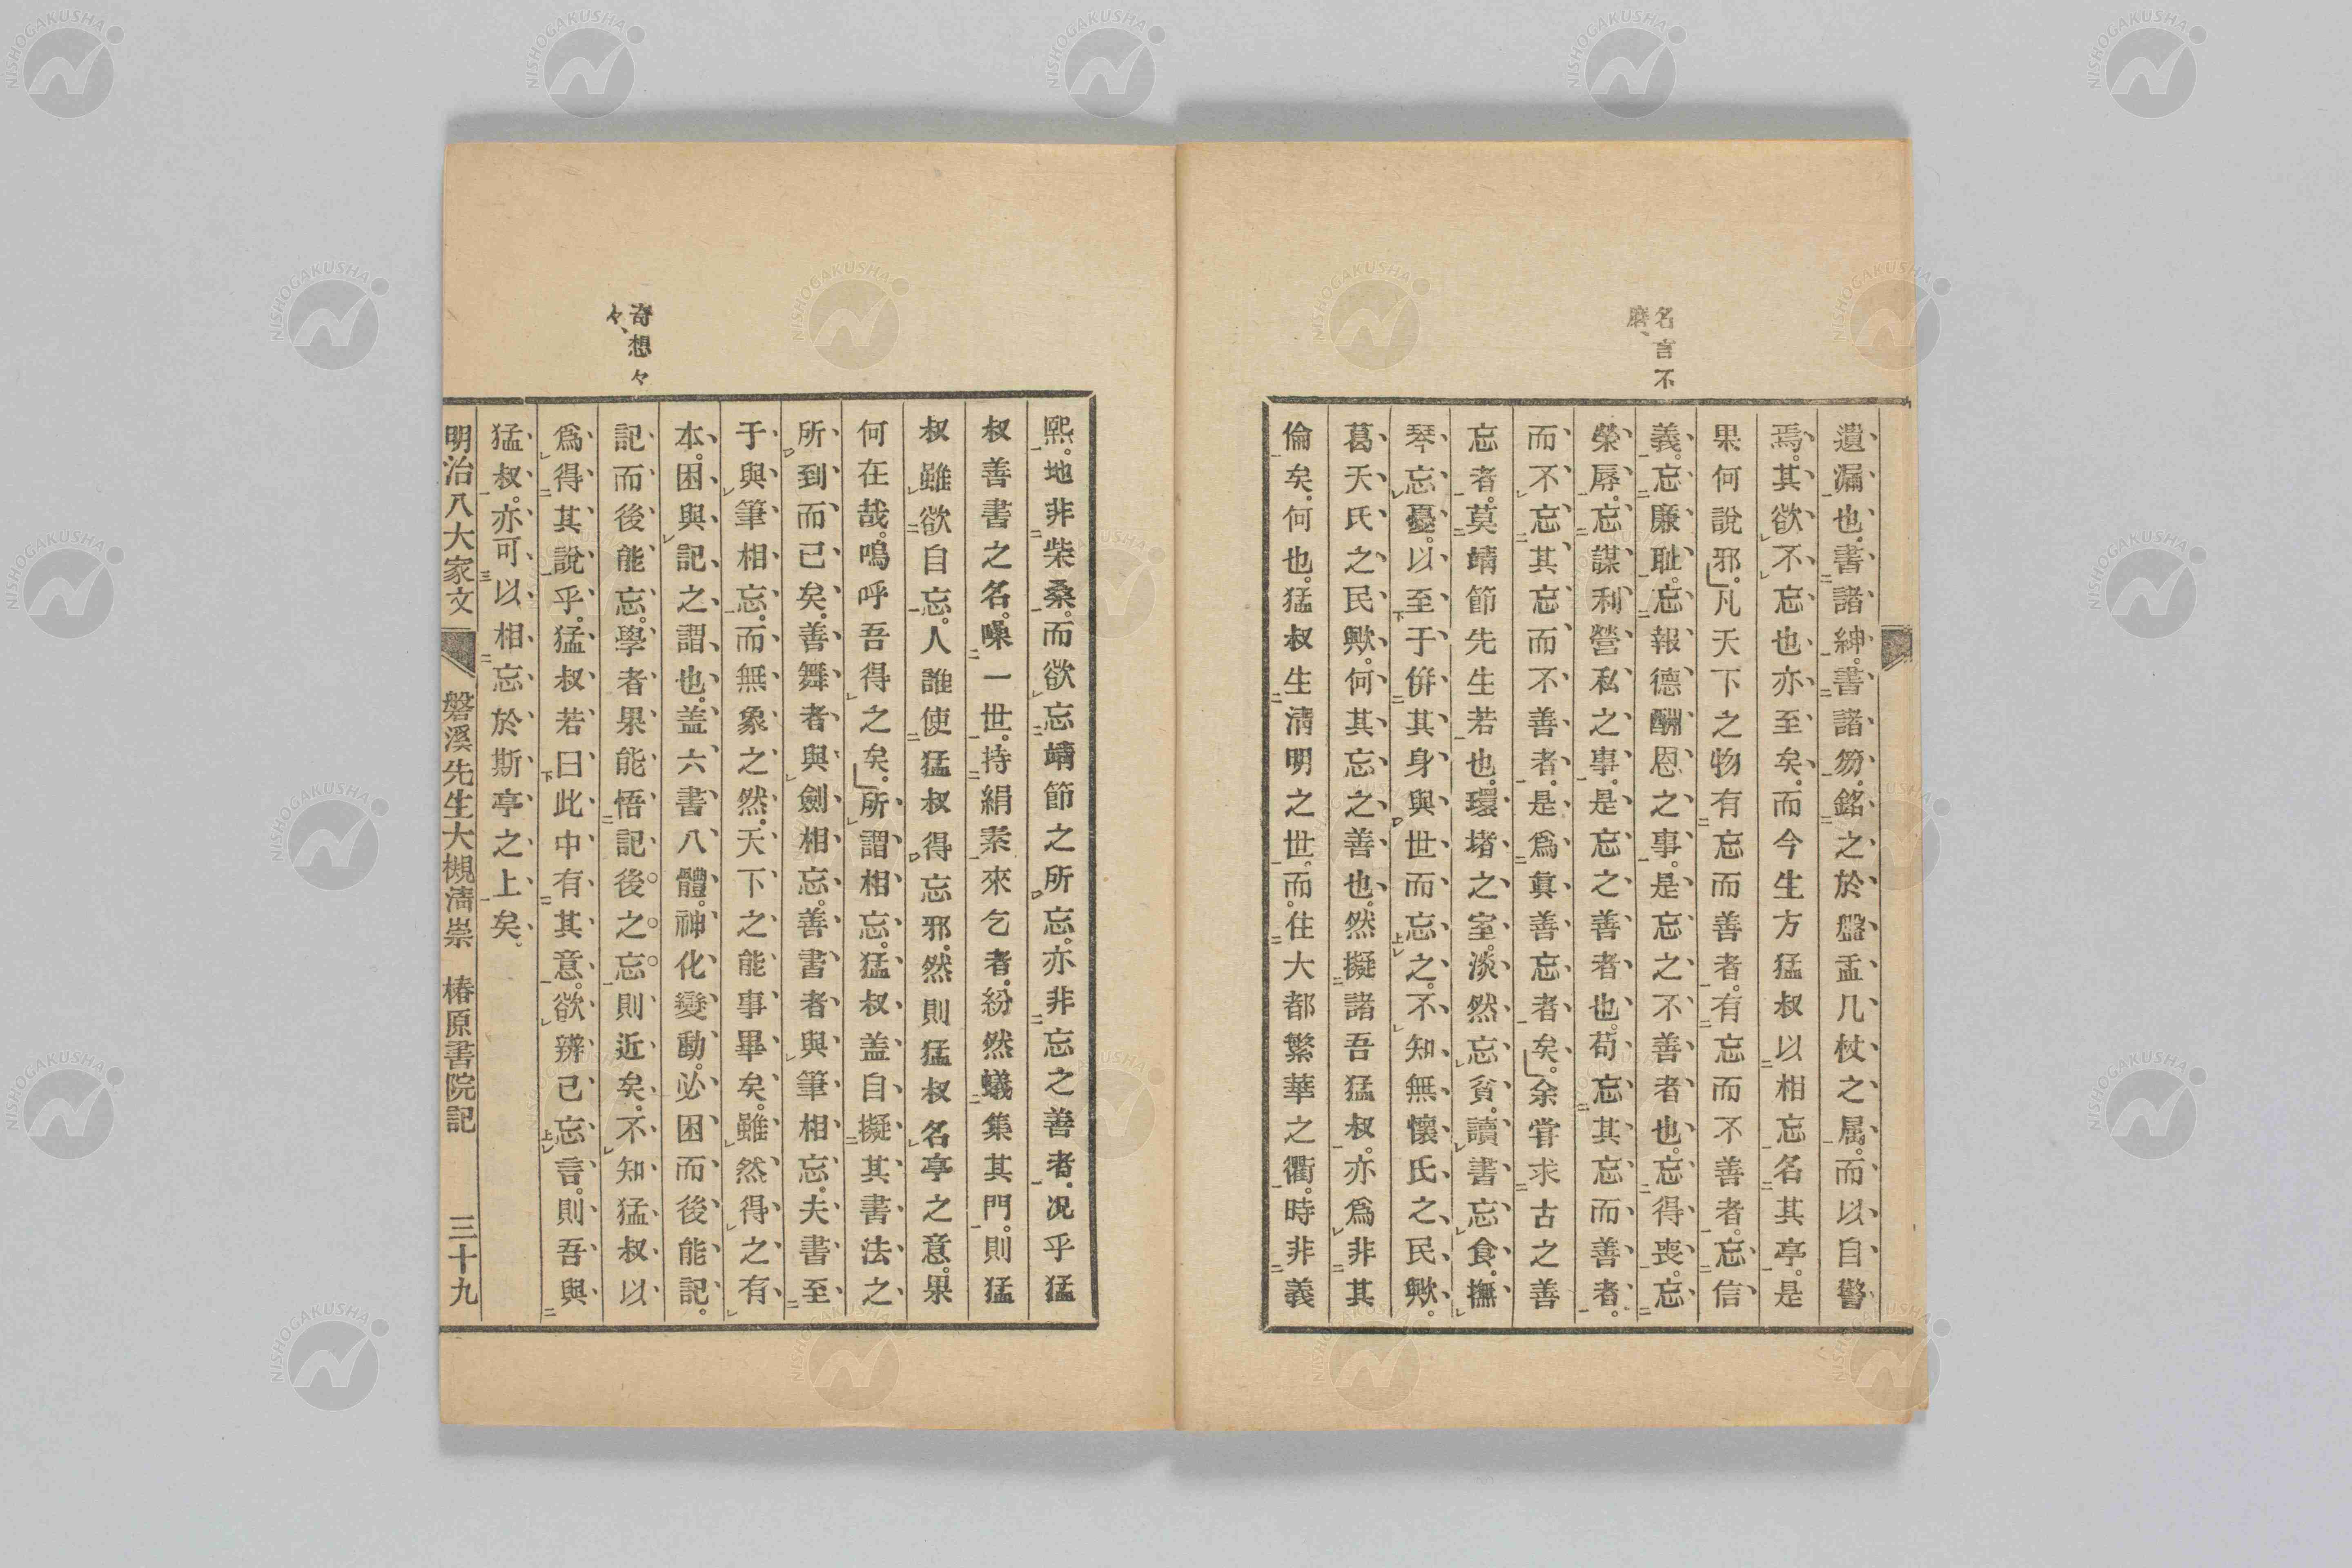 名言不
磨、
遺漏也。書諸紳。書諸笏。銘之於盤盂几杖之属。而以自警
焉。其欲不忘也亦至矣。而今生方猛叔以相忘名其亭。是
果何說邪。凡天下之物有忘而善者。有忘而不善者。忘信
義。忘廉耻。忘報德酬恩之事。是忘之不善者也。忘得喪。忘
榮辱。忘謀利營私之事。是忘之善者也。苟忘其忘而善者。
而不忘其忘而不善者。是爲眞善忘者矣。余甞求古之善
忘者。莫靖節先生若也。環堵之室。淡然忘貧。讀書忘食。撫
琴忘憂。以至于併其身與世而忘之。不知無懷氏之民歟。
葛天氏之民歟。何其忘之善也。然擬諸吾猛叔。亦爲非其
倫矣。何也。猛叔生淸明之世。而住大都繁華之衢。時非義
奇想々
々、
熙。地非柴桑。而欲忘靖節之所忘。亦非忘之善者。况乎猛
叔善書之名。噪一世。持絹素來乞者。紛然蟻集其門。則猛
叔雖欲自忘。人誰使猛叔得忘邪。然則猛叔名亭之意。果
何在哉。嗚呼吾得之矣。所謂相忘。猛叔盖自擬其書法之
所到而已矣。善舞者與劍相忘。善書者與筆相忘。夫書至
于與筆相忘。而無象之然。天下之能事畢矣。雖然得之有
本。困與記之謂也。盖六書八體。神化變動。必困而後能記。
記而後能忘。學者果能悟記後之忘則近矣。不知猛叔以
爲得其說乎。猛叔若曰此中有其意。欲辨已忘言。則吾與
猛叔。亦可以相忘於斯亭之上矣。
明治八大家文 磐溪先生大槻淸崇 椿原書院記 三十九